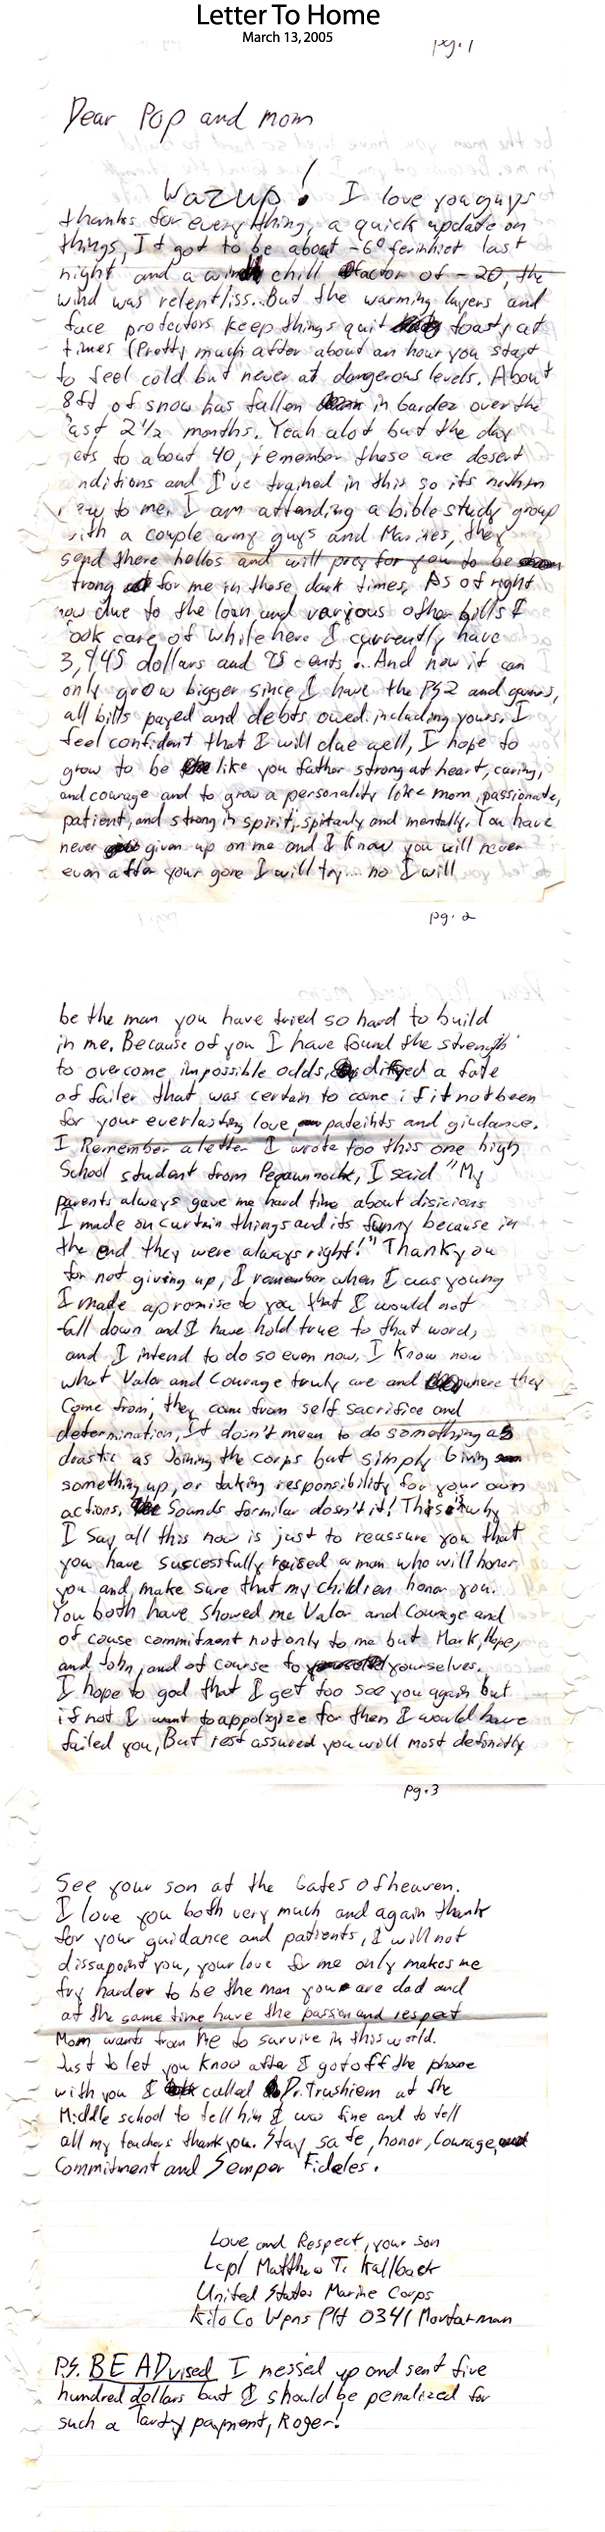 Letter To Home
March 13, 2005
pg. 1
Dear Pop and mom
Wazup! I love you guys
thanks for everything, a quick update on
things, It got to be about -6° ferinhiet last
night and a wind chill factor of -20, the
wind was relentliss.. But the warming layers and
face protectors keep things quit toasty at
times (Pretty much after about an hour you start
to feel cold but never at dangerous levels. About
8ft of snow has fallen in Gardez over the
ast 2 1/2 months. Yeah alot but the day
ets to about 40, remember these are desert
nditions and I've trained in this so its nothin
ew to me. I am attending a bible study group
ith a couple army guys and Marines, they
send there hellos and will pray for you to be
trong for me in these dark times. As of right
now due to the loan and varyious other bills I
ook care of while here I currently have
3,945 dollars and 95 cents... And now it can
only grow bigger since I have the PS2 and games,
all bills payed and debts owed including yours. I
feel confident that I will due well, I hope to
grow to be like you father strong at heart, caring,
and courage and to grow a personality like mom, passionate,
patient, and strong in spirit, spitauly and mentally. You have
never given up on me and I know you will never
even after your gone I will try... no I will
pg. 2
be the man you have tried so hard to build
in me. Because of you I have found the strength
to overcome impossible odds, difyed a fate
of failer that was certain to come if it not been
for your everlasting love, pateihts and giudance.
I Remember a letter I wrote too this one high
School student from Pequannock, I said "My
parents always gave me hard time about disicions
I made on curtain things and its funny because in
the end they were always right!" Thank you
for not giving up, I remember when I was young
I made a promise to you that I would not
fall down and I have hold true to that word,
and I intend to do so even now. I know now
what Valor and Courage truly are and where they
Come from; they come from self sacrifice and
determination, It dosn't mean to do something as
drastic as Joining the corps but simply Giving
something up, or taking responsibility for your own
actions. Sounds formilar dosn't it! This is why
I say all this now is just to reassure you that
you have successfully raised a man who will honor
you and make sure that my children honor you.
You both have showed me Valor and Courage and
of couse commitment not only to me but Mark, Hope,
and John, and of course to yourselves.
I hope to god that I get too see you again but
if not I want to appolgize for then I would have
failed you, But rest assured you will most definitly
pg. 3
See your son at the Gates of heaven.
I love you both very much and again thank
for your guidance and patients, I will not
dissapoint you, your love for me only makes me
try harder to be the man you are dad and
at the same time have the passion and respect
Mom wants from me to survive in this world.
Just to let you know after I got off the phone
with you I called Dr. Trushiem at the
Middle school to tell him I was fine and to tell
all my teachers thank you. Stay safe, honor, Courage,
Commitment and Semper Fideles.
Love and Respect, your son
Lcpl Matthew T. Kallback
United States Marine Corps
Kilo Co Wpns Plt 0341 Mortarman
P.S. BE ADvised I messed up and sent five
hundred dollars but I should be penalized for
such a Tardy payment, Roger!